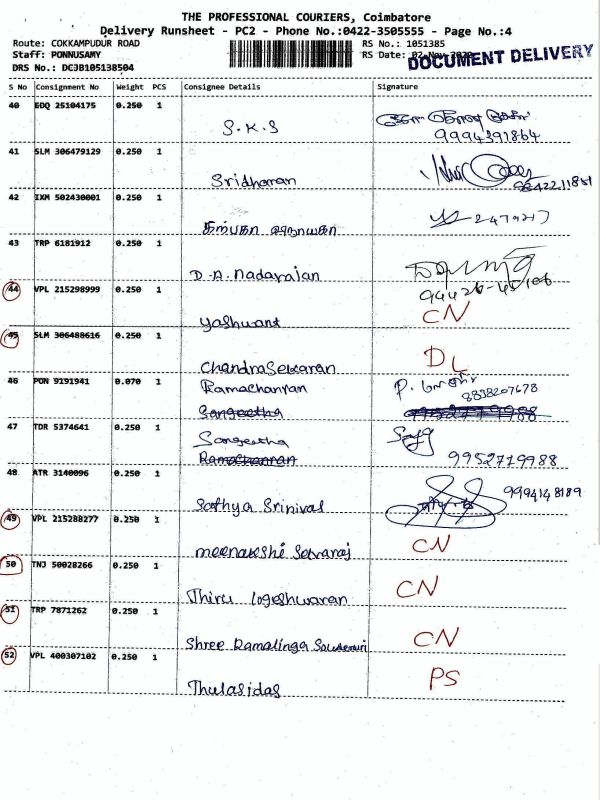 THE PROFESSIONAL COURIERS, Coimbatore
Delivery Runsheet - PC2 - Phone No.:0422-3505555 - Page No.:4
Route: COKKAMPUDUR ROAD RS No.: 1051385
Staff: PONNUSAMY RS Date: 02-Nov-2020
DOCUMENT DELIVERY
DRS No.: DCJB105138504
S No Consignment No Weight PCS Consignee Details Signature
40 EDQ 25104175 0.250 1
S.K.S 9994391864
41 SLM 306479129 0.250 1
Sridharan
42 IXM 502430001 0.250 1
43 TRP 6181912 0.250 1
D.A. Nadarajan
44 VPL 215298999 0.250 1
Yashwant CN
45 SLM 306488616 0.250 1
Chandraselvaran DL
46 PON 9191941 0.070 1
8838207678
Sangeetha 9952779988
47 TDR 5374641 0.250 1
Sangeetha 9952719988
48 ATR 3140096 0.250 1
Sathya Srinivas 9994148189
49 VPL 215288277 0.250 1
meenakshi Selvaraj CN
50 TNJ 50028266 0.250 1
Thiru logeshwaran CN
51 TRP 7871262 0.250 1
Shree Ramalinga CN
52 VPL 400307102 0.250 1
Thulasidas PS